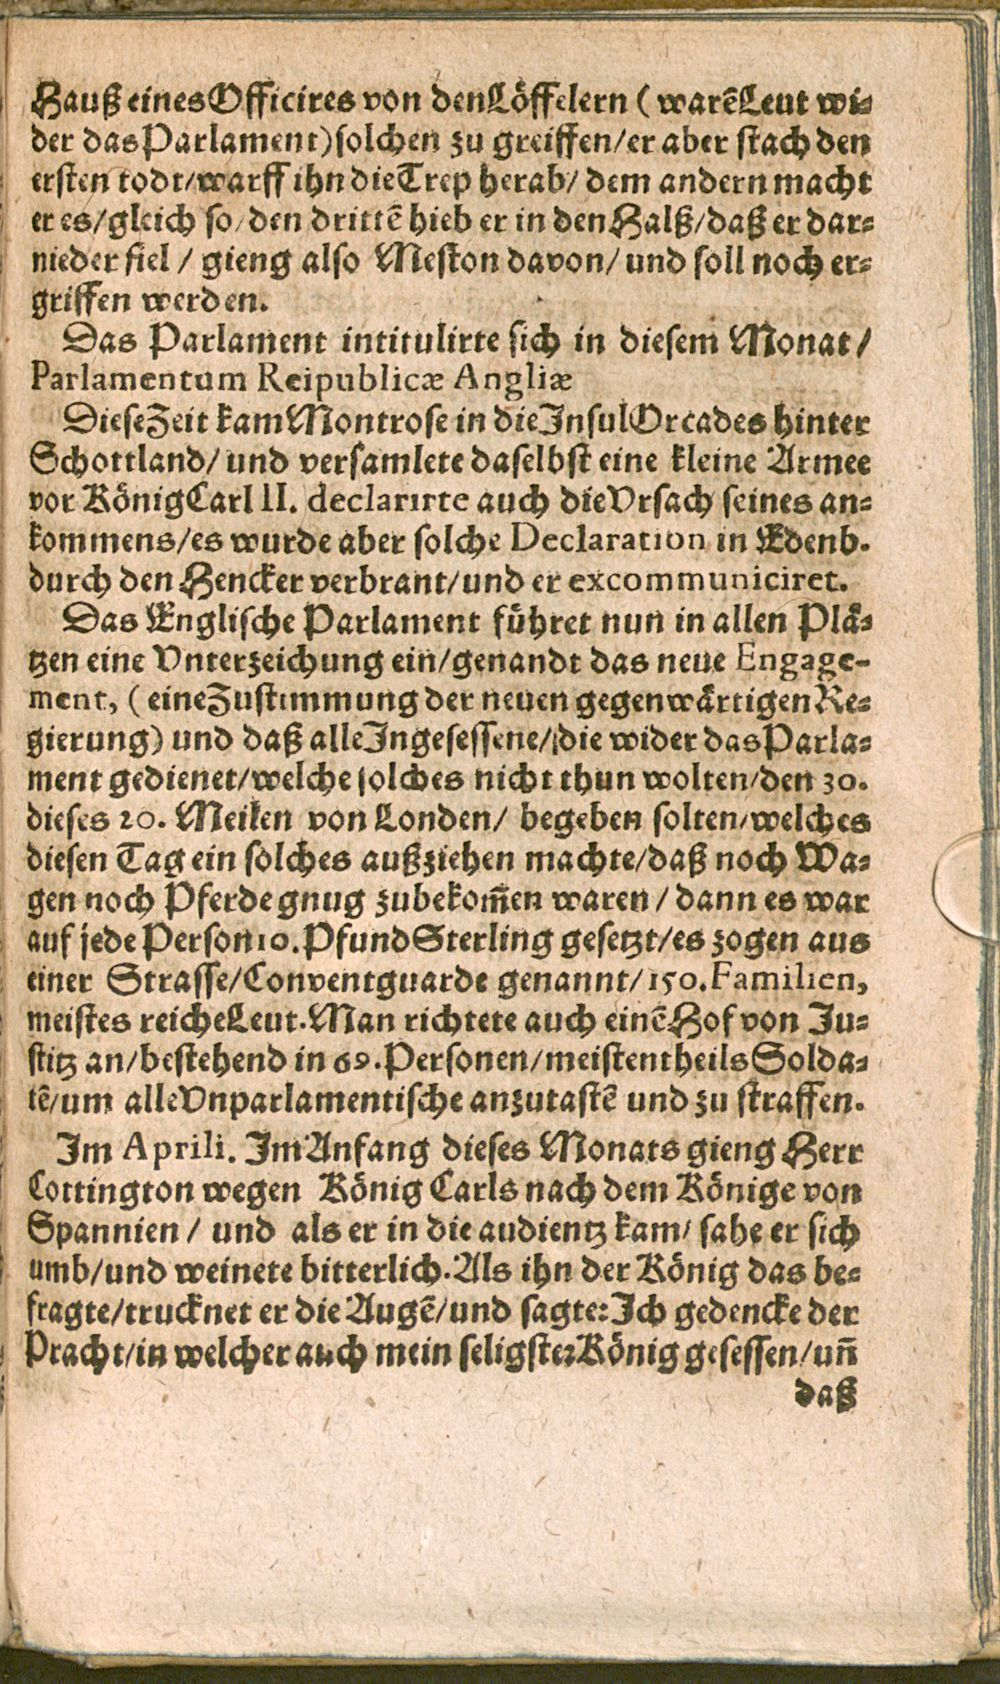 Hauß eines Officires von den Löffelern ( warẽ Leut wi-
der das Parlament) solchen zu greiffen/ er aber stach den
ersten todt/ warff ihn die Trep herab/ dem andern macht
er es/ gleich so/ den drittẽ hieb er in den Halß/ daß er dar-
nieder fiel / gieng also Meston davon/ und soll noch er-
griffen werden.
Das Parlament intitulirte sich in diesem Monat /
Parlamentum Reipublicæ Angliæ
Diese Zeit kam Montrose in die Insul Orcades hinter
Schottland/ und versamlete daselbst eine kleine Armee
vor König Carl II. declarirte auch die Vrsach seines an-
kommens/ es wurde aber solche Declaration in Edenb.
durch den Hencker verbrant/ und er excommuniciret.
Das Englische Parlament führet nun in allen Plä-
tzen eine Vnterzeichung ein/ genandt das neue Engage-
ment, ( eine Zustimmung der neuen gegenwärtigen Re-
gierung) und daß alle Ingesessene/ die wider das Parla-
ment gedienet/ welche solches nicht thun wolten/ den 30.
dieses 20. Meilen von Londen/ begeben solten/ welches
diesen Tag ein solches außziehen machte/ daß noch Wa-
gen noch Pferde gnug zubekom̃en waren / dann es war
auf jede Person 10. Pfund Sterling gesetzt/ es zogen aus
einer Strasse/ Conventguarde genannt/ 150. Familien,
meistes reiche Leut. Man richtete auch einẽ Hof von Ju-
stitz an/ bestehend in 69. Personen/ meistentheils Solda-
tẽ/ um alle Vnparlamentische anzutastẽ und zu straffen.
Im Aprili. Im Anfang dieses Monats gieng Herr
Cottington wegen König Carls nach dem Könige von
Spannien / und als er in die audientz kam/ sahe er sich
umb/ und weinete bitterlich. Als ihn der König das be-
fragte/ trucknet er die Augẽ/ und sagte: Ich gedencke der
Pracht/ in welcher auch mein seligster König gesessen/ uñ
daß